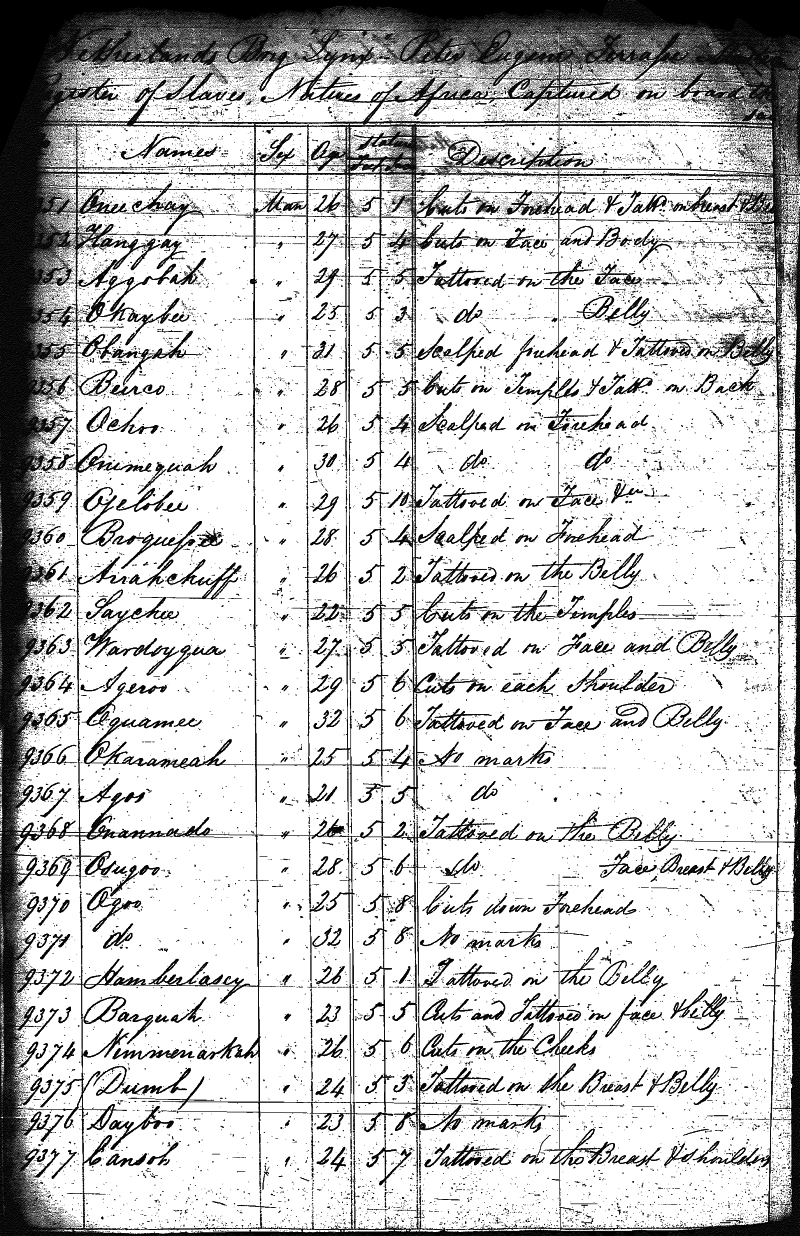 Netherlands Brig Lynx Peter Eugene Terrasse
Register of Slaves, Natives of Africa, Captured on board the
Names Sex Age Stature Feet In Description
9351 Oneechay Man 26 5 1 Cuts on Forehead & Tatt. on breast &
9352 Hanggay " 27 5 4 Cuts on Face and Body
9353 Aggobah " 29 5 5 Tattooed on the Face
9354 Okaybee " 25 5 3 do " Belly
9355 Obangah " 31 5 5 Scalped forehead & Tattooed on Belly
9356 Beirco " 28 5 5 Cuts on Temples & Tatt. on Back
9357 Ochoo " 26 5 4 Scalped on Forehead
9358 Onumequah " 30 5 4 do do
9359 Ojelobee " 29 5 10 Tattooed on Face &c
9360 Broquessee " 28 5 4 Scalped on Forehead
9361 Ariahchuff " 26 5 2 Tattooed on the Belly
9362 Saychee " 22 5 5 Cuts on the Temples
9363 Wardoyqua " 27 5 5 Tattooed on Face and Belly
9364 Ageroo " 29 5 6 Cuts on each Shoulder
9365 Oquamee " 32 5 6 Tattooed on Face and Belly
9366 Okarameah " 25 5 4 No marks
9367 Agos " 21 5 5 do
9368 Enannado " 26 5 2 Tattooed on the Belly
9369 Osugoo " 28 5 6 do Face, Breast & Belly
9370 Ogoo " 25 5 8 Cuts down Foreheads
9371 do " 32 5 8 No marks
9372 Hamberlascy " 26 5 1 Tattooed on the Belly
9373 Barquah " 23 5 5 Cuts and Tattooed on face & belly
9374 Nimmenarkah " 26 5 6 Cuts on the Cheeks
9375 (Dumb) " 24 5 5 Tattooed on the Breast & Belly
9376 Dayboo " 23 5 8 No marks
9377 Cansoh " 24 5 7 Tattooed on the Breast & Shoulders